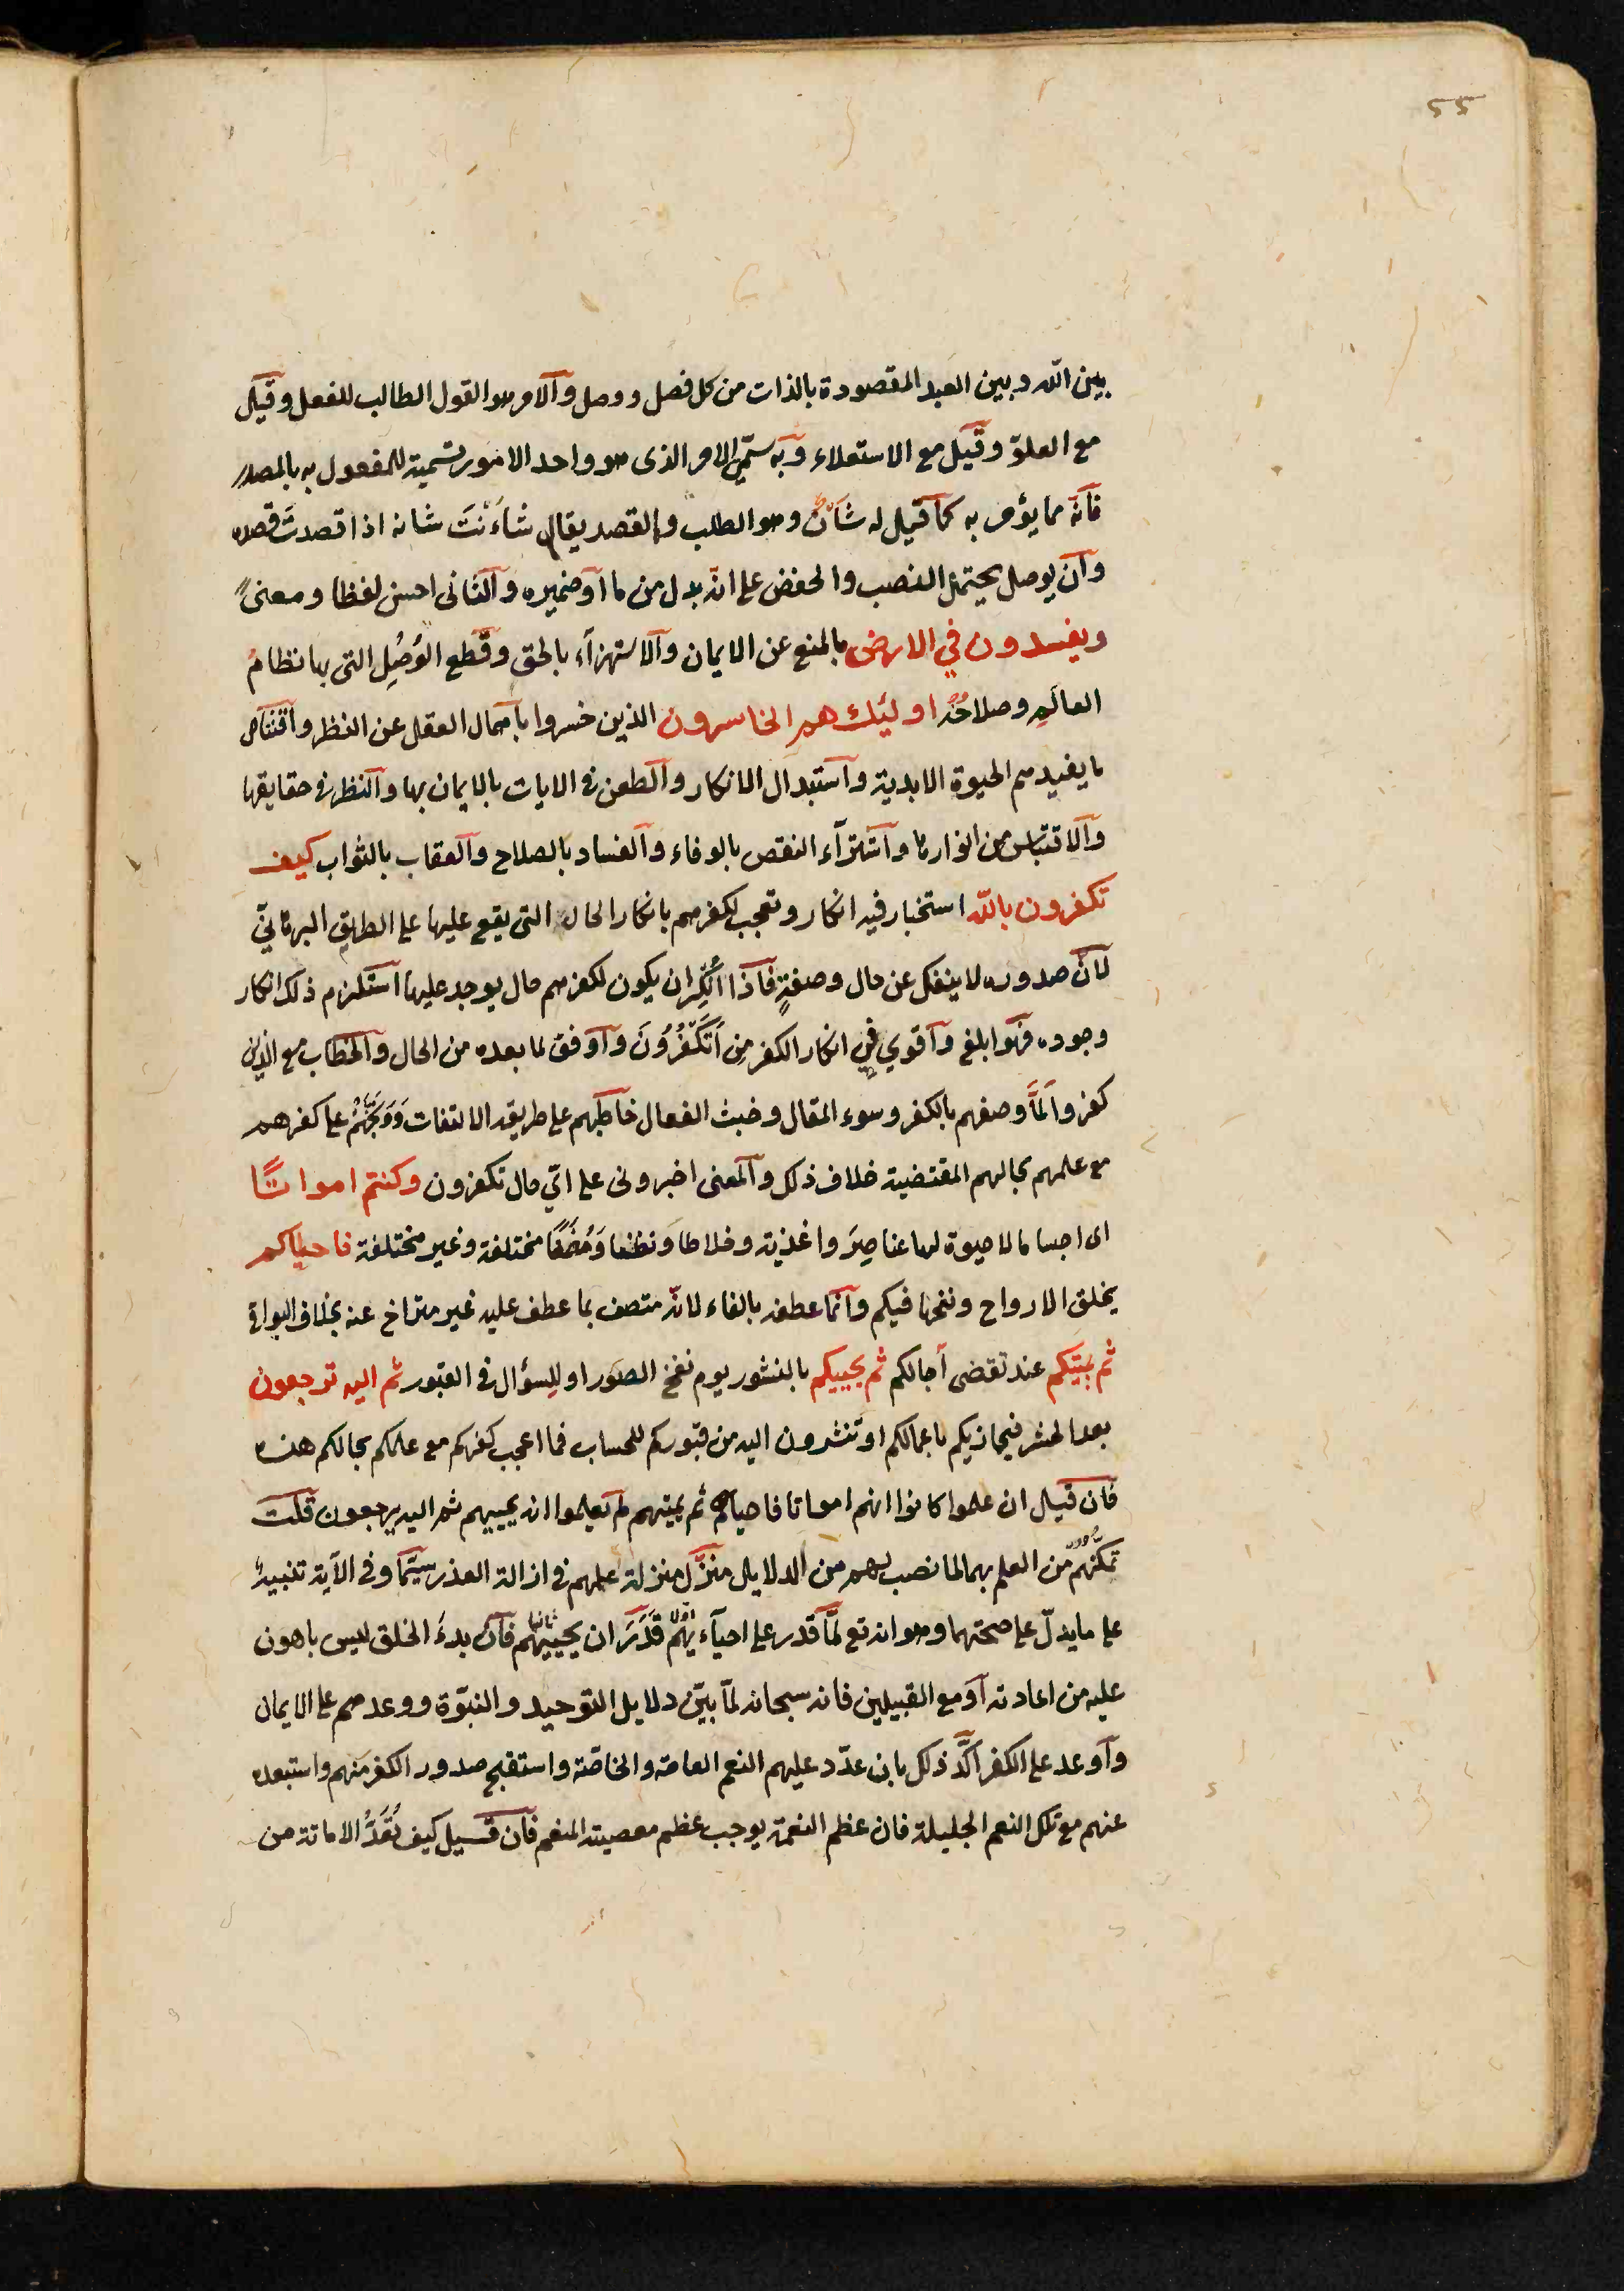 ٥٥
بين الله وبين العبد المقصودة بالذات من كل فصل ووصل والامر هو القول الطالب للفعل وقيل
مع العلوّ وقيل مع الاستعلاء وبه سمّي الامر الذى هو واحد الامور تسمية للمفعول به بالمصدر
فانّه مما يؤمر به كما قيل له شأنٌ وهو الطلب والقصد يقال شَأَنْتَ شانه اذا قصدتَ قصده
وان يوصل يحتمل النصب والخفض على انّه بدل من ما او ضميره والثانى احسن لفظا ومعنىً
ويفسدون في الارض بالمنع عن الايمان والاستهزآء بالحق وقطع الوُصَلِ التى بها نظامُ
العالَمِ وصلاحُهُ اولئك هم الخاسرون الذين خسروا باهمال العقل عن النظر واقتناص
ما يفيدهم الحيوة الابدية واستبدال الانكار والطعن فى الايات بالايمان بها والنظر فى حقايقها
والاقتباس من انوارها واشترآء النقض بالوفاء والفساد بالصلاح والعقاب بالثواب كيف
تكفرون بالله استخبار فيه انكار وتعجب لكفرهم بانكار الحال التى يقع عليها على الطريق البرهانيّ
لانّ صدوره لا ينفك عن حال وصفةٍ فاذا اُنكِرَ ان يكون لكفرهم حال يوجد عليها استلزم ذلك انكار
وجوده فهو ابلغ واقوي في انكار الكفر مِن اَتَكْفُرُونَ واوفق لما بعده من الحال والخطاب مع الذين
كفروا لَمَّا وصفهم بالكفر وسوء المقال وخبث الفعال خاطبهم على طريقه الالتفات وَوَبَّخَهُمْ على كفرهم
مع علمهم بحالهم المقتضية خلاف ذلك والمعنى اخبرونى على اىّ حال تكفرون وكنتم امواتًا
اى اجساما لا حيوة لها عناصِرَ واغذية واخلاطا ونطفا وَمُضَغًا مختلفة وغير مختلفة فاحياكم
بخلق الارواح ونفخها فيكم وانّما عطفه بالفاء لانّه متصف بما عطف عليه غير متراخ عنه بخلاف البواقى
ثم يميتكم عند تقضى آجالكم ثم يحييكم بالنشور يوم نفخ الصور او للسؤال فى القبور ثم اليه ترجعون
بعد الحشر فيجازيكم باعمالكم او تنشرون اليه من قبوركم للحساب فما اعجب كفركم مع علمكم بحالكم هذه
فان قيل ان علموا كانوا انهم امواتا فاحياهم ثم يميتهم لم تعلموا انه يحييهم ثم اليه يرجعون قلت
تمكّنهم من العلم بهما لما نصب لهم من الدلايل منزّل منزلة علمهم فى ازالة العذر سيّما وفى الآية تنبيهٌ
على ما يدلّ على صحتهما وهو انه تع لمّا قدر على احيآءيهم اوّلا قَدَرَ ان يحييهم ثانيا فانّ بدءَ الخلق ليس باهون
عليه من اعادته او مع القبيلين فانه سبحانه لمّا بيّن دلايل التوحيد والنبوّة ووعدهم على الايمان
واوعد على الكفر اكَّد ذلك بان عدّد عليهم النعم العامة والخاصّة واستقبح صدور الكفر منهم واستبعده
عنهم مع تلك النعم الجليلة فان عظم النعمة يوجب عظم معصية المنعم فان قيل كيف تُعَدُّ الاماتة من